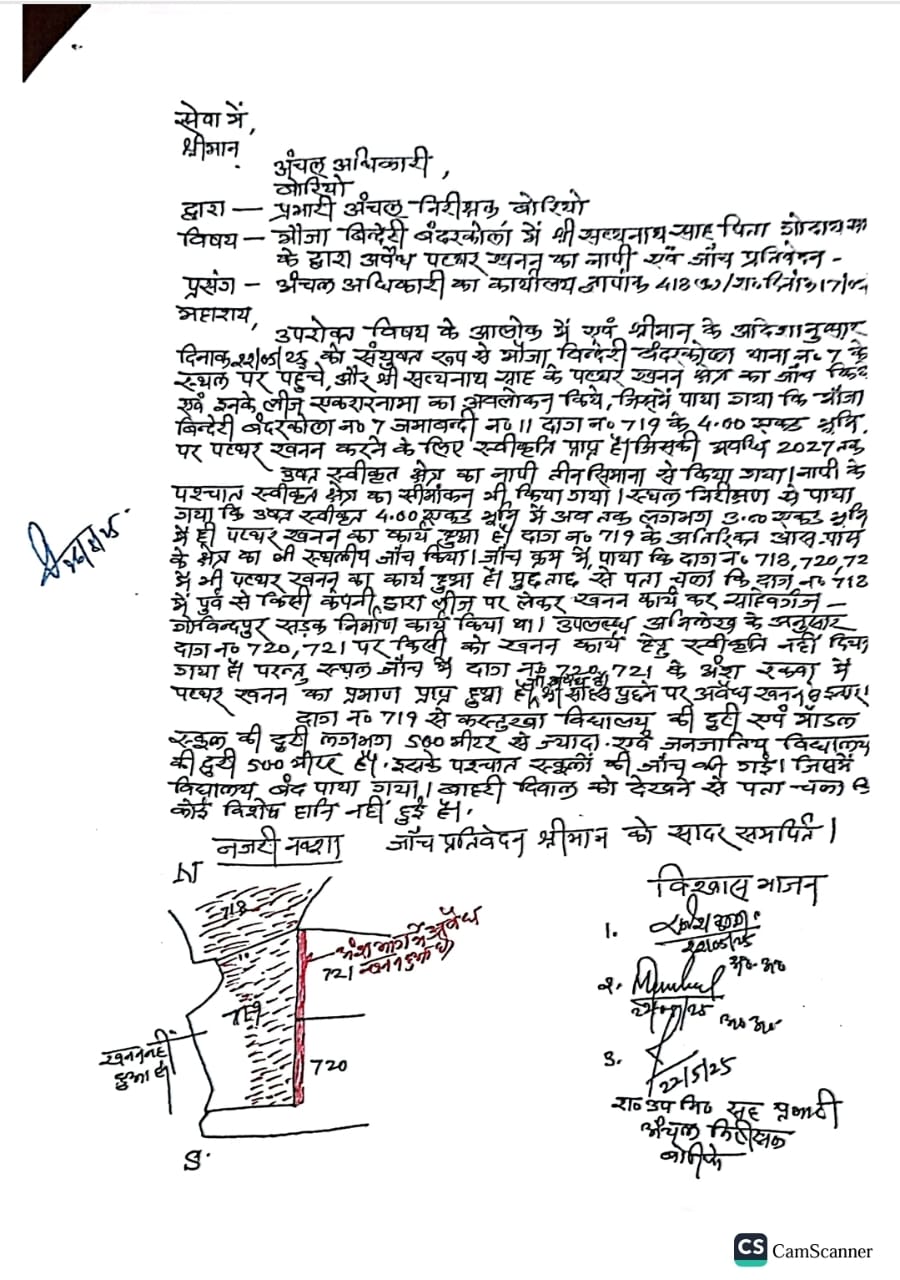 सेवा में,
श्रीमान्
अंचल अधिकारी,
बोरियो
द्वारा — प्रभारी अंचल निरीक्षक बोरियो
विषय — मौजा बिन्देरी बंदरकोला में श्री सत्यनाथ साह पिता
के द्वारा अवैध पत्थर खनन का नापी एवं जाँच प्रतिवेदन -
प्रसंग - अंचल अधिकारी का कार्यालय ज्ञापांक 418
महाशय,
उपरोक्त विषय के आलोक में एवं श्रीमान के आदेशानुसार
दिनांक 22/05/25 को संयुक्त रूप से मौजा बिन्देरी बंदरकोला थाना न० 7 के
स्थल पर पहुचे, और श्री सत्यनाथ साह के पत्थर खनन क्षेत्र का जाँच किए
एवं इनके लीज एकरारनामा का अवलोकन किये, जिसमें पाया गया कि मौजा
बिन्देरी बंदरकोला न० 7 जमाबन्दी न० 11 दाग न० 719 के 4.00 एकड भूमि
पर पत्थर खनन करने के लिए स्वीकृति प्राप्त है। जिसकी अवधि 2027 तक
उक्त स्वीकृत क्षेत्र का नापी तीन सिमाना से किया गया। नापी के
पश्चात स्वीकृत क्षेत्र का सीमांकन भी किया गया। स्थल निरीक्षण से पाया
गया कि उक्त स्वीकृत 4.00 एकड भूमि में अब तक लगभग 3.00 एकड भूमि
में ही पत्थर खनन का कार्य हुआ है। दाग न० 719 के अतिरिक्त आस-पास
के क्षेत्र का भी स्थलीय जाँच किया। जाँच क्रम में, पाया कि दाग न० 718, 720, 72
में भी पत्थर खनन का कार्य हुआ है। पुछताछ से पता चला कि दाग न० 718
में पूर्व से किसी कंपनी द्वारा लीज पर लेकर खनन कार्य कर साहेबगंज -
गोविन्दपुर सड़क निर्माण कार्य किया था। उपलब्ध अभिलेख के अनुसार
दाग न० 720, 721 पर किसी को खनन कार्य हेतु स्वीकृति नहीं दिया
गया है। परन्तु स्थल जाँच में दाग न० 720, 721 के अंश रकवा में
पत्थर खनन का प्रमाण प्राप्त हुआ है। पुछने पर अवैध खनन
दाग न० 719 से कस्तुरबा विद्यालय की दुरी एवं मॉडल
स्कूल की दुरी लगभग 500 मीटर से ज्यादा एवं जनजातिय विद्यालय
की दुरी 500 मीटर है। इसके पश्चात स्कूलों की जाँच की गई। जिसमें
विद्यालय बंद पाया गया। बाहरी दिवाल को देखने से पता चला कि
कोई विशेष हानि नहीं हुई है।
जाँच प्रतिवेदन श्रीमान को सादर समर्पित।
नजरी नक्शा
N
718
अंश भाग में अवैध
721 खनन हुआ है
719
खनन नही
हुआ है।
720
S
विश्वास भाजन
1.
22/05/25
अ० अ०
2.
22/05/25
अ० अ०
3.
22/5/25
रा० उप नि० सह प्रभारी
अंचल निरीक्षक
बोरियो
CS CamScanner